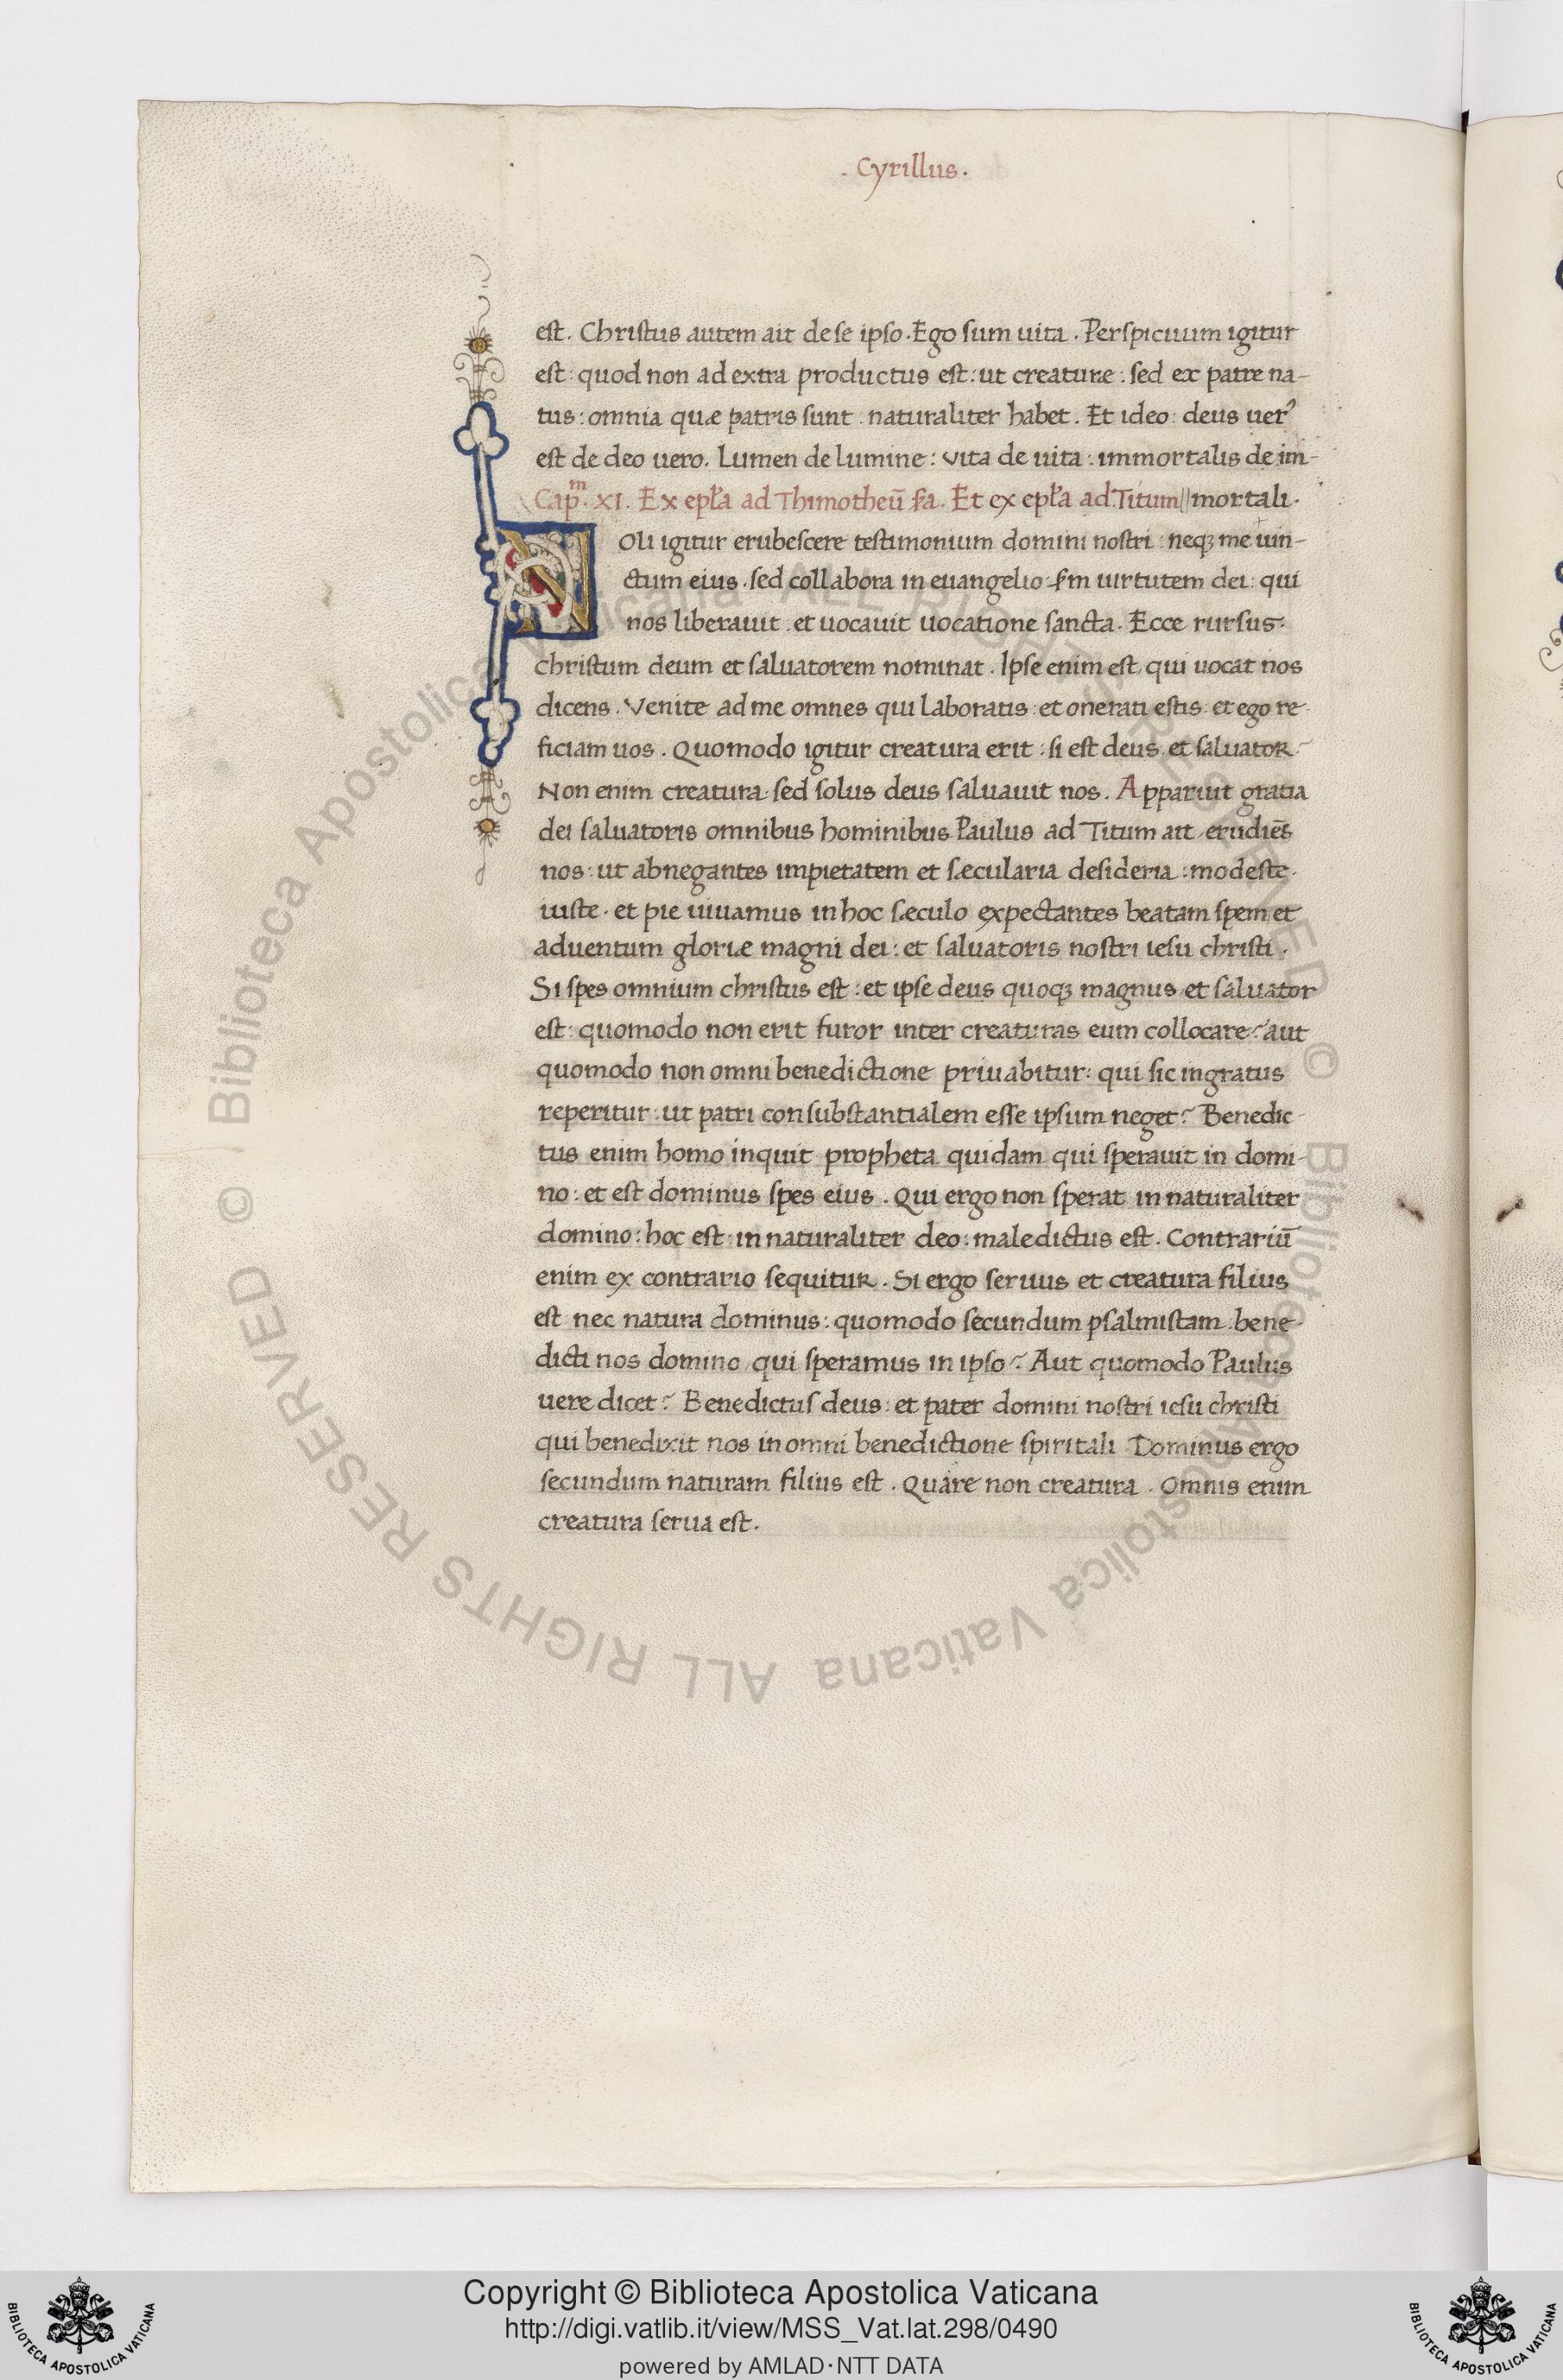 . Cyrillus .
est . Christus autem ait de se ipso . Ego sum uita . Perspicuum igitur
est : quod non ad extra productus est : ut creaturæ : sed ex patre na-
tus : omnia quæ patris sunt . naturaliter habet . Et ideo : deus uerꝰ
est de deo uero . Lumen de lumine : vita de uita : immortalis de im-
Cap.ᵐ XI. Ex epl̄a ad Thimotheū .2a. Et ex epl̄a ad Titum || mortali .
Noli igitur erubescere testimonium domini nostri : neqꝫ me uin-
ctum eius . sed collabora in euangelio scḋm uirtutem dei : qui
nos liberauit . et uocauit uocatione sancta . Ecce rursus .
christum deum et saluatorem nominat . Ipse enim est qui uocat nos
dicens . Venite ad me omnes qui laboratis et onerati estis : et ego re-
ficiam uos . Quomodo igitur creatura erit : si est deus et saluator ?
Non enim creatura . sed solus deus saluauit nos . Apparuit gratia
dei saluatoris omnibus hominibus Paulus ad Titum ait erudiēs
nos : ut abnegantes impietatem et sæcularia desideria : modeste .
iuste . et pie uiuamus in hoc sæculo expectantes beatam spem et
aduentum gloriæ magni dei : et saluatoris nostri iesu christi .
Si spes omnium christus est : et ipse deus quoqꝫ magnus et saluator
est : quomodo non erit furor inter creaturas eum collocare ? aut
quomodo non omni benedictione priuabitur : qui sic ingratus
reperitur : ut patri consubstantialem esse ipsum neget ? Benedic-
tus enim homo inquit propheta quidam qui sperauit in domi-
no : et est dominus spes eius . Qui ergo non sperat in naturaliter
domino : hoc est in naturaliter deo : maledictus est . Contrariū
enim ex contrario sequitur . Si ergo seruus et creatura filius
est nec natura dominus : quomodo secundum psalmistam . bene-
dicti nos domino qui speramus in ipso ? Aut quomodo Paulus
uere dicet ? Benedictus deus : et pater domini nostri iesu christi
qui benedixit nos in omni benedictione spiritali . Dominus ergo
secundum naturam filius est . Quare non creatura . Omnis enim
creatura serua est .
© Biblioteca Apostolica Vaticana ALL RIGHTS RESERVED © Biblioteca Apostolica Vaticana ALL RIGHTS RESERVED
Copyright © Biblioteca Apostolica Vaticana
http://digi.vatlib.it/view/MSS_Vat.lat.298/0490
powered by AMLAD·NTT DATA
BIBLIOTECA APOSTOLICA VATICANA
BIBLIOTECA APOSTOLICA VATICANA